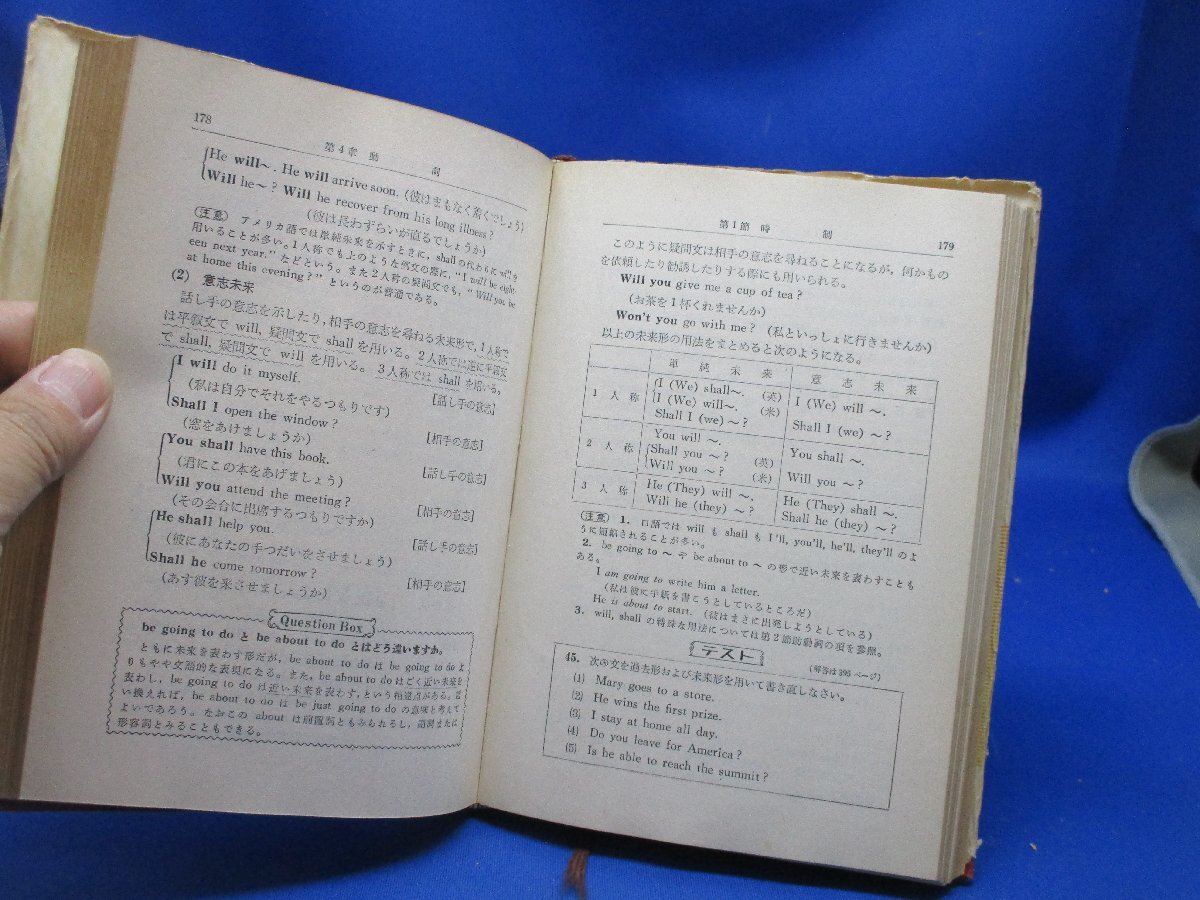 178
第4章 動 詞
He will~. He will arrive soon. (彼はまもなく着くでしょう)
Will he~? Will he recover from his long illness?
(彼は長わずらいが直るでしょうか)
(注意) アメリカ語では単純未来を示すときに, shall の代わりに will を
用いることが多い。1人称でも上のような例文の際に, "I will be eight-
een next year." などという。また2人称の疑問文でも, "Will you be
at home this evening?" というのが普通である。
(2) 意志未来
話し手の意志を示したり, 相手の意志を尋ねる未来形で, 1人称で
は平叙文で will, 疑問文で shall を用いる。2人称では逆に平叙文
で shall, 疑問文で will を用いる。3人称では shall を用いる。
I will do it myself.
(私は自分でそれをやるつもりです) [話し手の意志]
Shall I open the window?
(窓をあけましょうか) [相手の意志]
You shall have this book.
(君にこの本をあげましょう) [話し手の意志]
Will you attend the meeting?
(その会合に出席するつもりですか) [相手の意志]
He shall help you.
(彼にあなたの手つだいをさせましょう) [話し手の意志]
Shall he come tomorrow?
(あす彼を来させましょうか) [相手の意志]
Question Box
be going to do と be about to do とはどう違いますか。
ともに未来を表わす形だが, be about to do は be going to do よ
りもやや文語的な表現になる。また, be about to do はごく近い未来を
表わし, be going to do は近い未来を表わす, という相違点がある。言
い換えれば, be about to do は be just going to do の意味と考えて
よいであろう。なおこの about は前置詞ともみられるし, 副詞または
形容詞とみることもできる。
第1節 時 制
179
このように疑問文は相手の意志を尋ねることになるが, 何かもの
を依頼したり勧誘したりする際にも用いられる。
Will you give me a cup of tea?
(お茶を1杯くれませんか)
Won't you go with me? (私といっしょに行きませんか)
以上の未来形の用法をまとめると次のようになる。
単 純 未 来 意 志 未 来
1 人 称 I (We) shall~. (英) I (We) will ~.
I (We) will~. (米)
Shall I (we) ~? Shall I (we) ~?
2 人 称 You will ~. You shall ~.
Shall you ~? (英)
Will you ~? (米) Will you ~?
3 人 称 He (They) will ~. He (They) shall ~.
Will he (they) ~? Shall he (they) ~?
(注意) 1. 口語では will も shall も I'll, you'll, he'll, they'll のよ
うに短縮されることが多い。
2. be going to ~ や be about to ~ の形で近い未来を表わすことも
ある。
I am going to write him a letter.
(私は彼に手紙を書こうとしているところだ)
He is about to start. (彼はまさに出発しようとしている)
3. will, shall の特殊な用法については第2節助動詞の項を参照。
テスト
(解答は395ページ)
45. 次の文を過去形および未来形を用いて書き直しなさい。
(1) Mary goes to a store.
(2) He wins the first prize.
(3) I stay at home all day.
(4) Do you leave for America?
(5) Is he able to reach the summit?